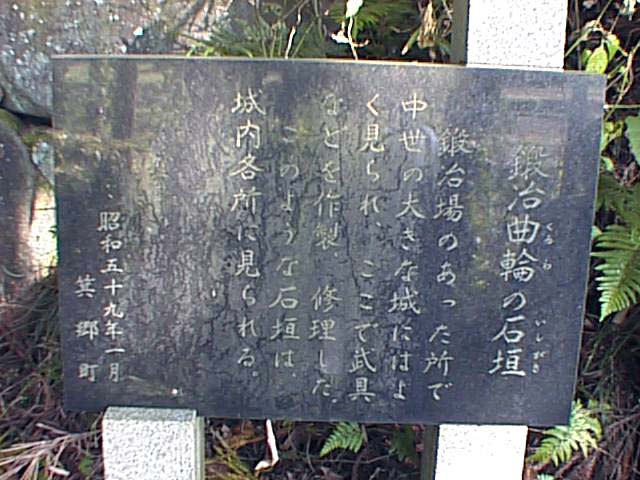 鍛冶曲輪の石垣
くるわ
いしがき
鍛冶場のあった所で
中世の大きな城にはよ
く見られ、ここで武具
などを作製、修理した。
このような石垣は、
城内各所に見られる。
昭和五十九年一月
箕郷町